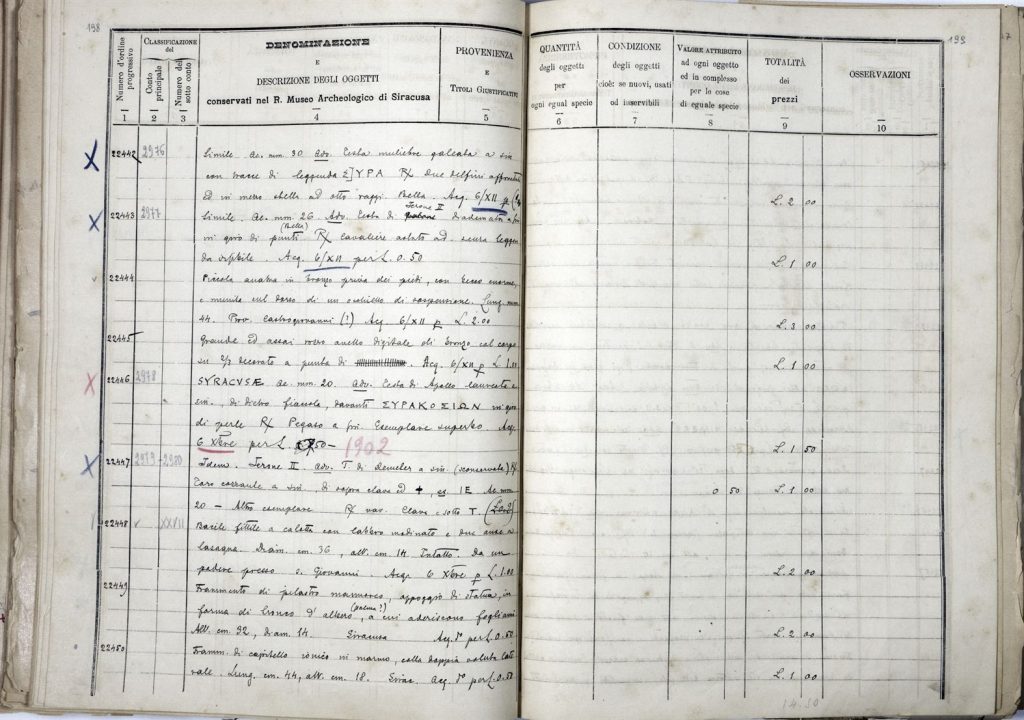 198
Numero d'ordine progressivo
CLASSIFICAZIONE del
Conto principale
Numero del sotto conto
DENOMINAZIONE
E
DESCRIZIONE DEGLI OGGETTI
conservati nel R. Museo Archeologico di Siracusa
PROVENIENZA
E
TITOLI GIUSTIFICATIVI
1 2 3 4 5
22442 2976 Simile. Ae. mm. 30 Adv. Testa muliebre galeata a sin
con tracce di leggenda Σ]ΥΡΑ R/ Due delfini affrontati
ed in mezzo stella ad otto raggi. Bella. Acq. 6/XII p
22443 2977 Simile. Ae. mm 26 Adv. Testa di Ierone II diademata a
in giro di punti (Bella) R/ Cavaliere astato ad. senza leggen
da visibile. Acq. 6/XII per L. 0.50
22444 Piccola anatra in bronzo priva dei piedi, con becco enorme,
e munita sul dorso di un occhiello di sospensione. Lung. mm
44. Prov. Castrogiovanni (?) Acq 6/XII p L. 2.00
22445 Grande ed assai rozzo anello digitale di bronzo, col corpo
su 2/3 decorato a punta di Acq. 6/XII p L. 1.00
22446 2978 SYRACVSÆ Ae. mm. 20. Adv. Testa di Apollo laureata a
sin., di dietro fiaccola, davanti ΣΥΡΑΚΟΣΙΩΝ in giro
di perle R/ Pegaso a sin. Esemplare superbo. Acq.
6 Xbre per L. 50 – 1902
22447 2979-2980 Idem. Ierone II. Adv. T. di Demeter a sin (sconservata) R/
Toro cozzante a sin., di sopra clava ed +, es. IE Ae mm
20 – Altro esemplare R/ var. Clava e sotto T.
22448 XXVII Bacile fittile a calotta con labbro modinato e due anse a
lasagna. Diam. cm. 36, alt. cm. 14. Intatto. Da un
podere presso S. Giovanni. Acq. 6 Xbre p L 1.00
22449 Frammento di pilastro marmoreo, appoggio di statua, in
forma di tronco d'albero (palma?), a cui aderiscono fogliami
Alt. cm. 92, diam. 14. Siracusa Acq. per L. 0.50
22450 Framm. di capitello ionico in marmo, colla doppia voluta late
rale. Lung. cm. 44, alt. cm. 18. Sirac. Acq. per L. 0.50
199
QUANTITÀ
degli oggetti
per
ogni egual specie
CONDIZIONE
degli oggetti
cioè: se nuovi, usati
od inservibili
VALORE ATTRIBUITO
ad ogni oggetto
ed in complesso
per le cose
di eguale specie
TOTALITÀ
dei
prezzi
OSSERVAZIONI
6 7 8 9 10
L. 2 00
L. 1 00
L. 3 00
L. 1 00
L. 1 50
0 50 L. 1 00
L. 2 00
L. 2 00
L. 1 00
14.50